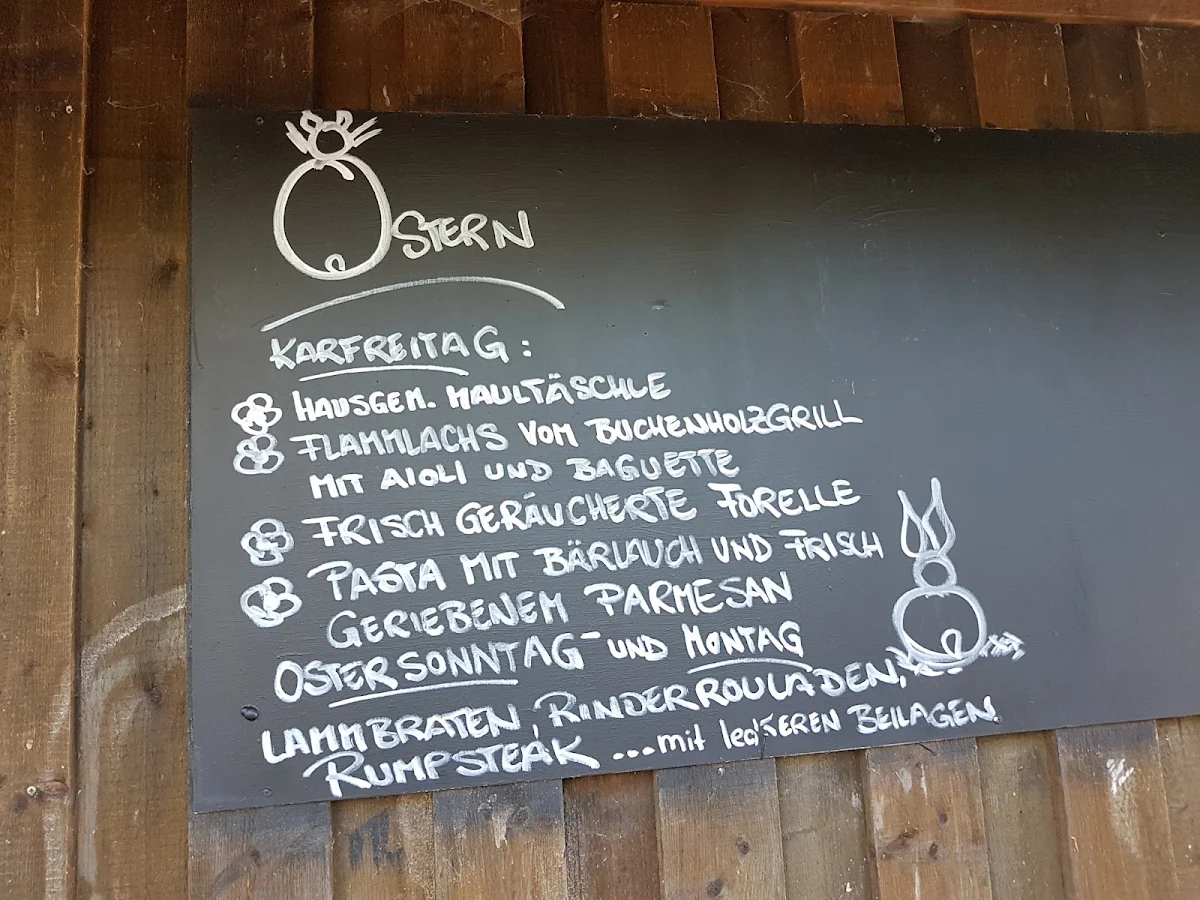 OSTERN
KARFREITAG:
HAUSGEM. MAULTÄSCHLE
FLAMMLACHS VOM BUCHENHOLZGRILL
MIT AIOLI UND BAGUETTE
FRISCH GERÄUCHERTE FORELLE
PASTA MIT BÄRLAUCH UND FRISCH
GERIEBENEM PARMESAN
OSTERSONNTAG- UND MONTAG
LAMMBRATEN, RINDERROULADEN,
RUMPSTEAK ...mit leckEREN BEILAGEN.